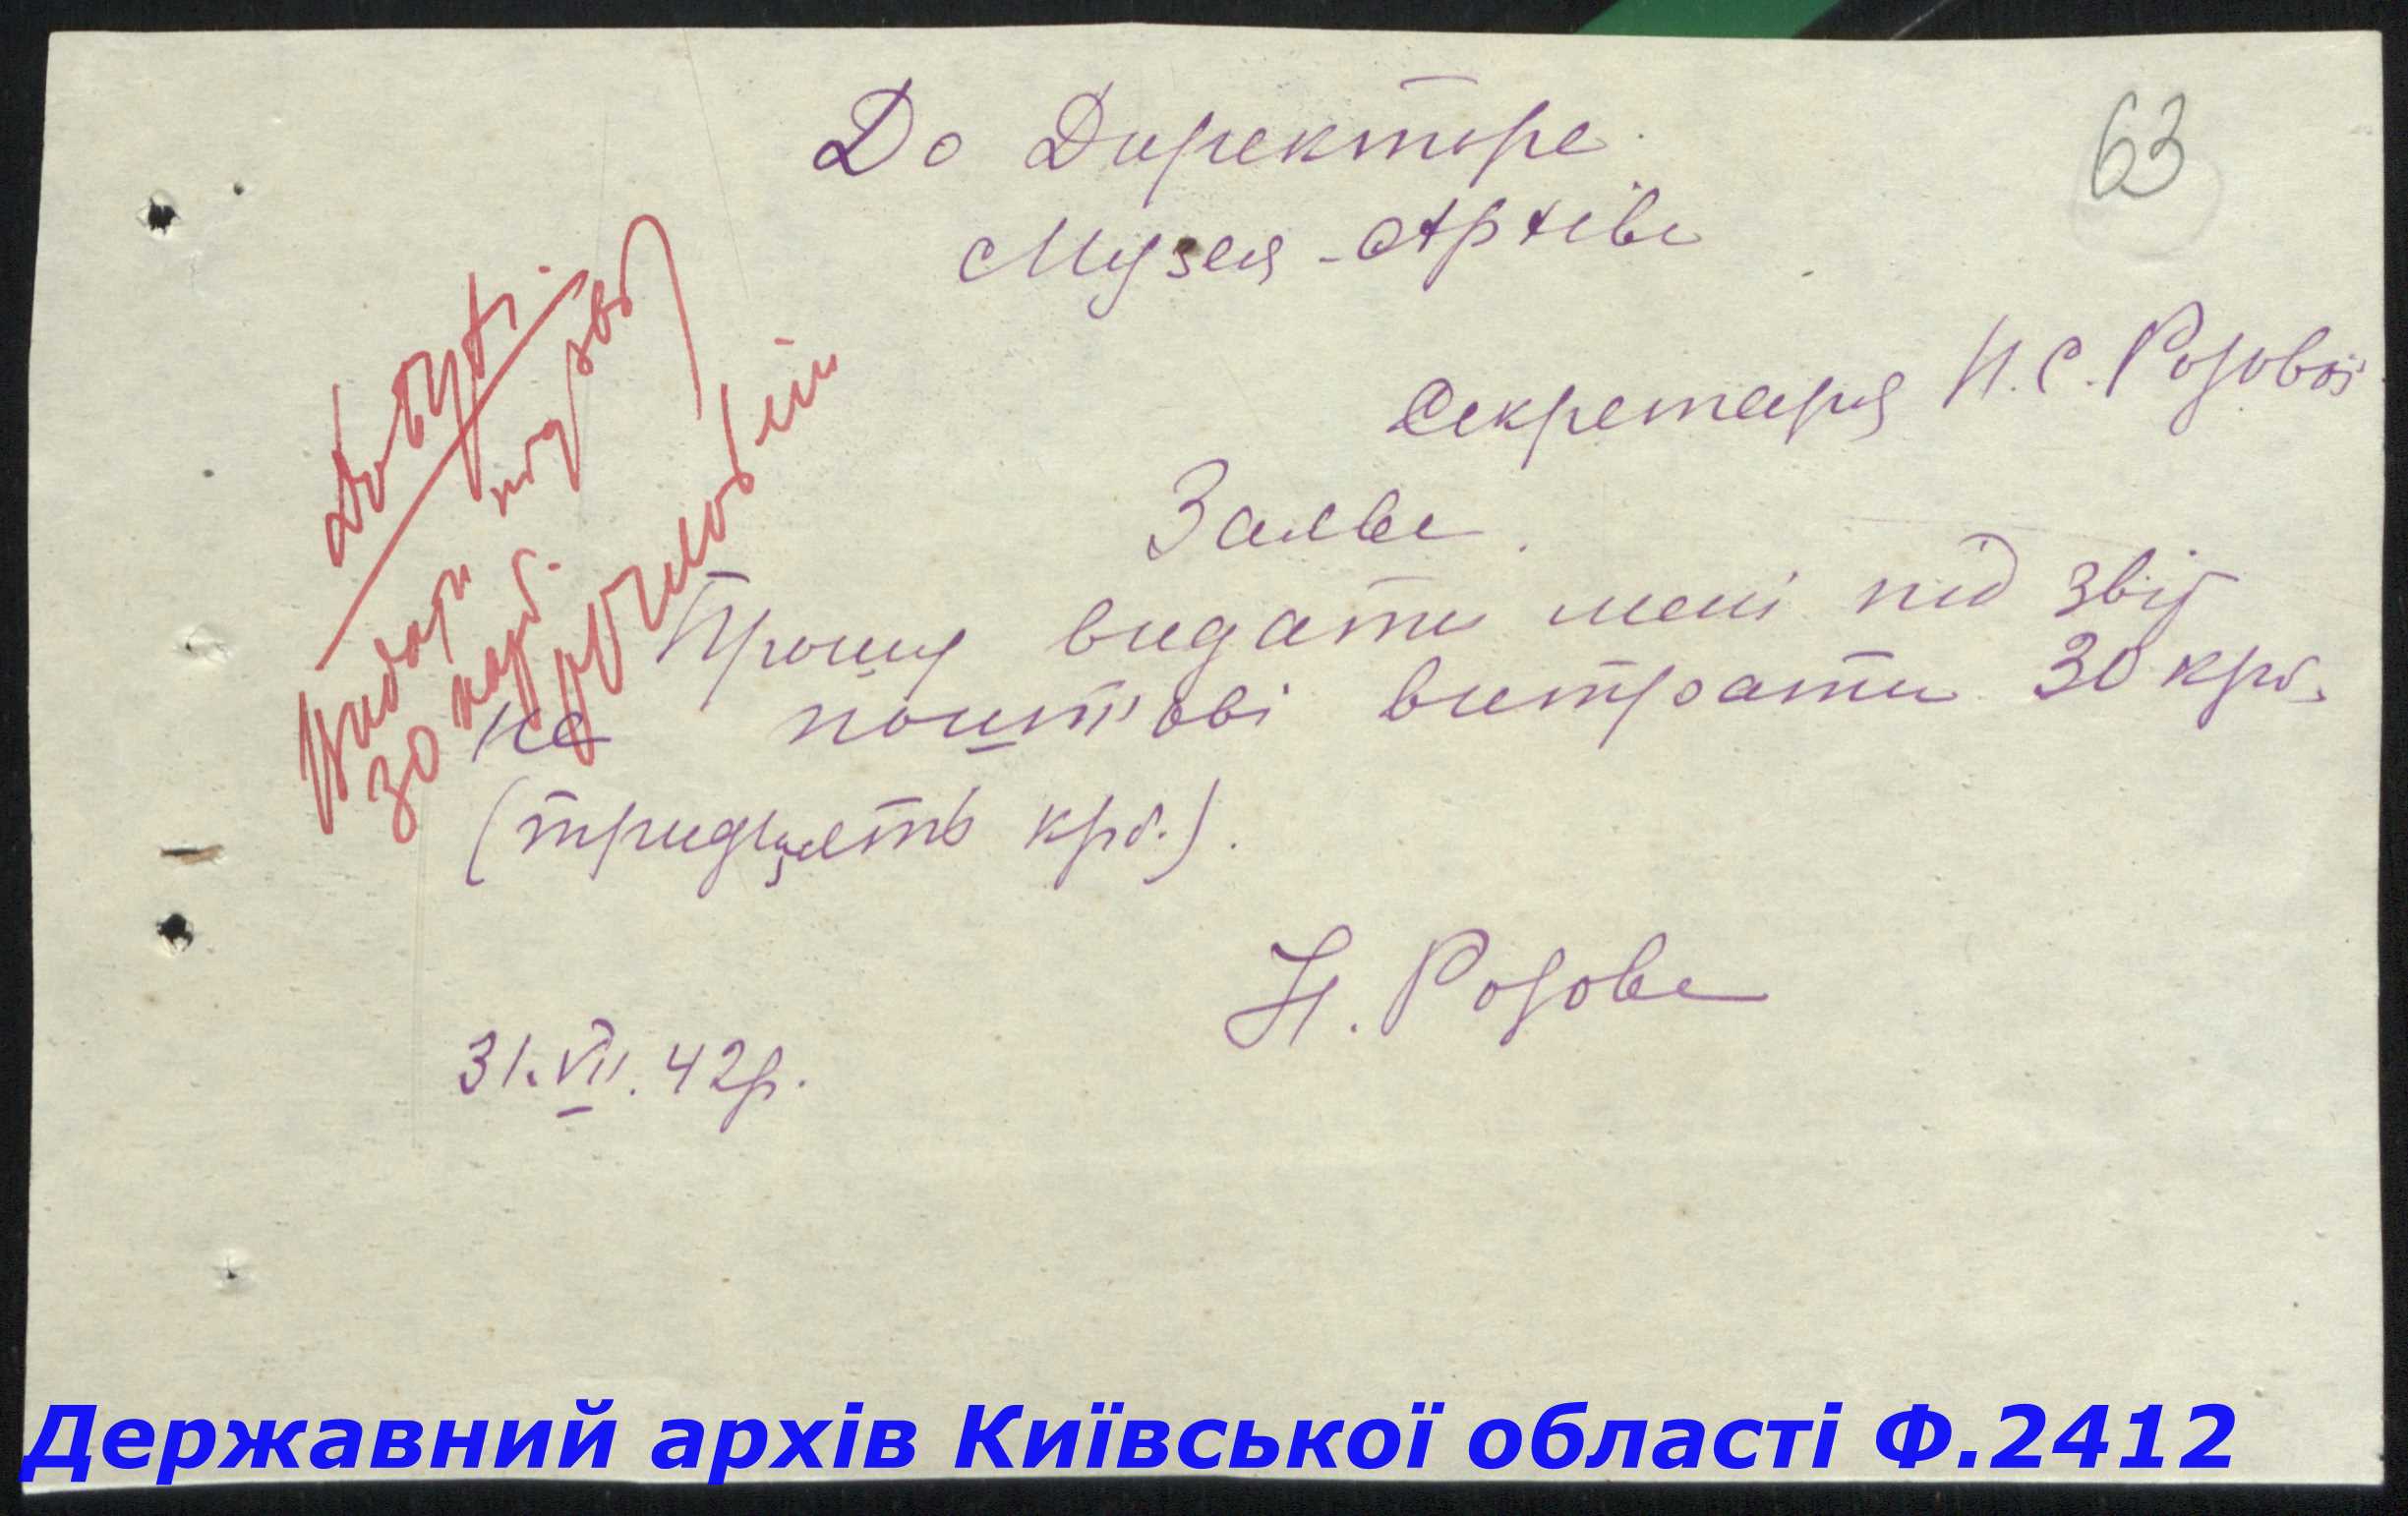 До Директора
63
Музея-Архіва
Секретаря Н.С. Розової
Заява.
Прошу видати мені під звіт
на поштові витрати 30 крб.
(тридцять крб.).
Н. Розова
31.VII.42р.
Видати
30 карб.
під звіт
Державний архів Київської області Ф.2412